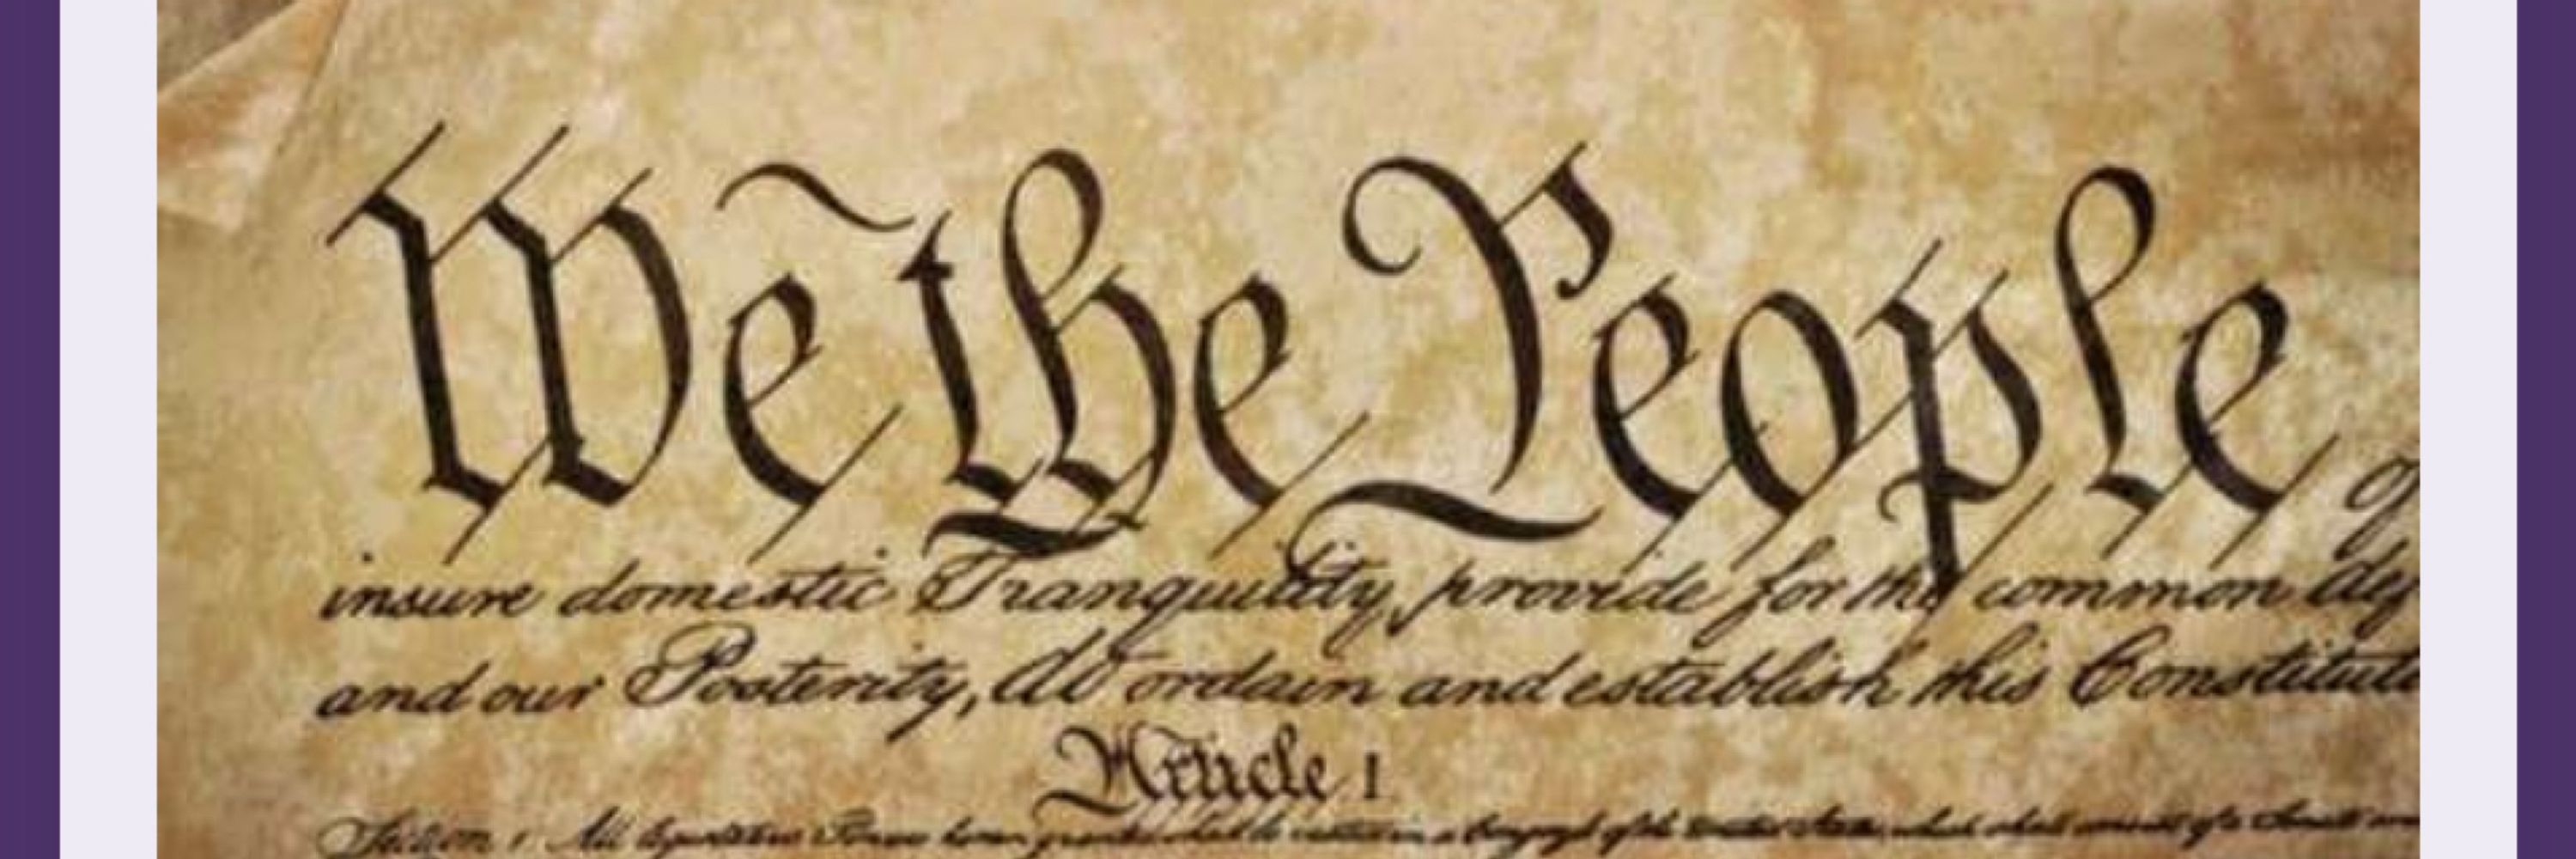 We the People
insure domestic Tranquility, provide for the common
and our Posterity, do ordain and establish this Constituti
Article I
Section 1 All legislative Powers herein granted shall be vested in a Congress of the United States which shall consist of a Senate